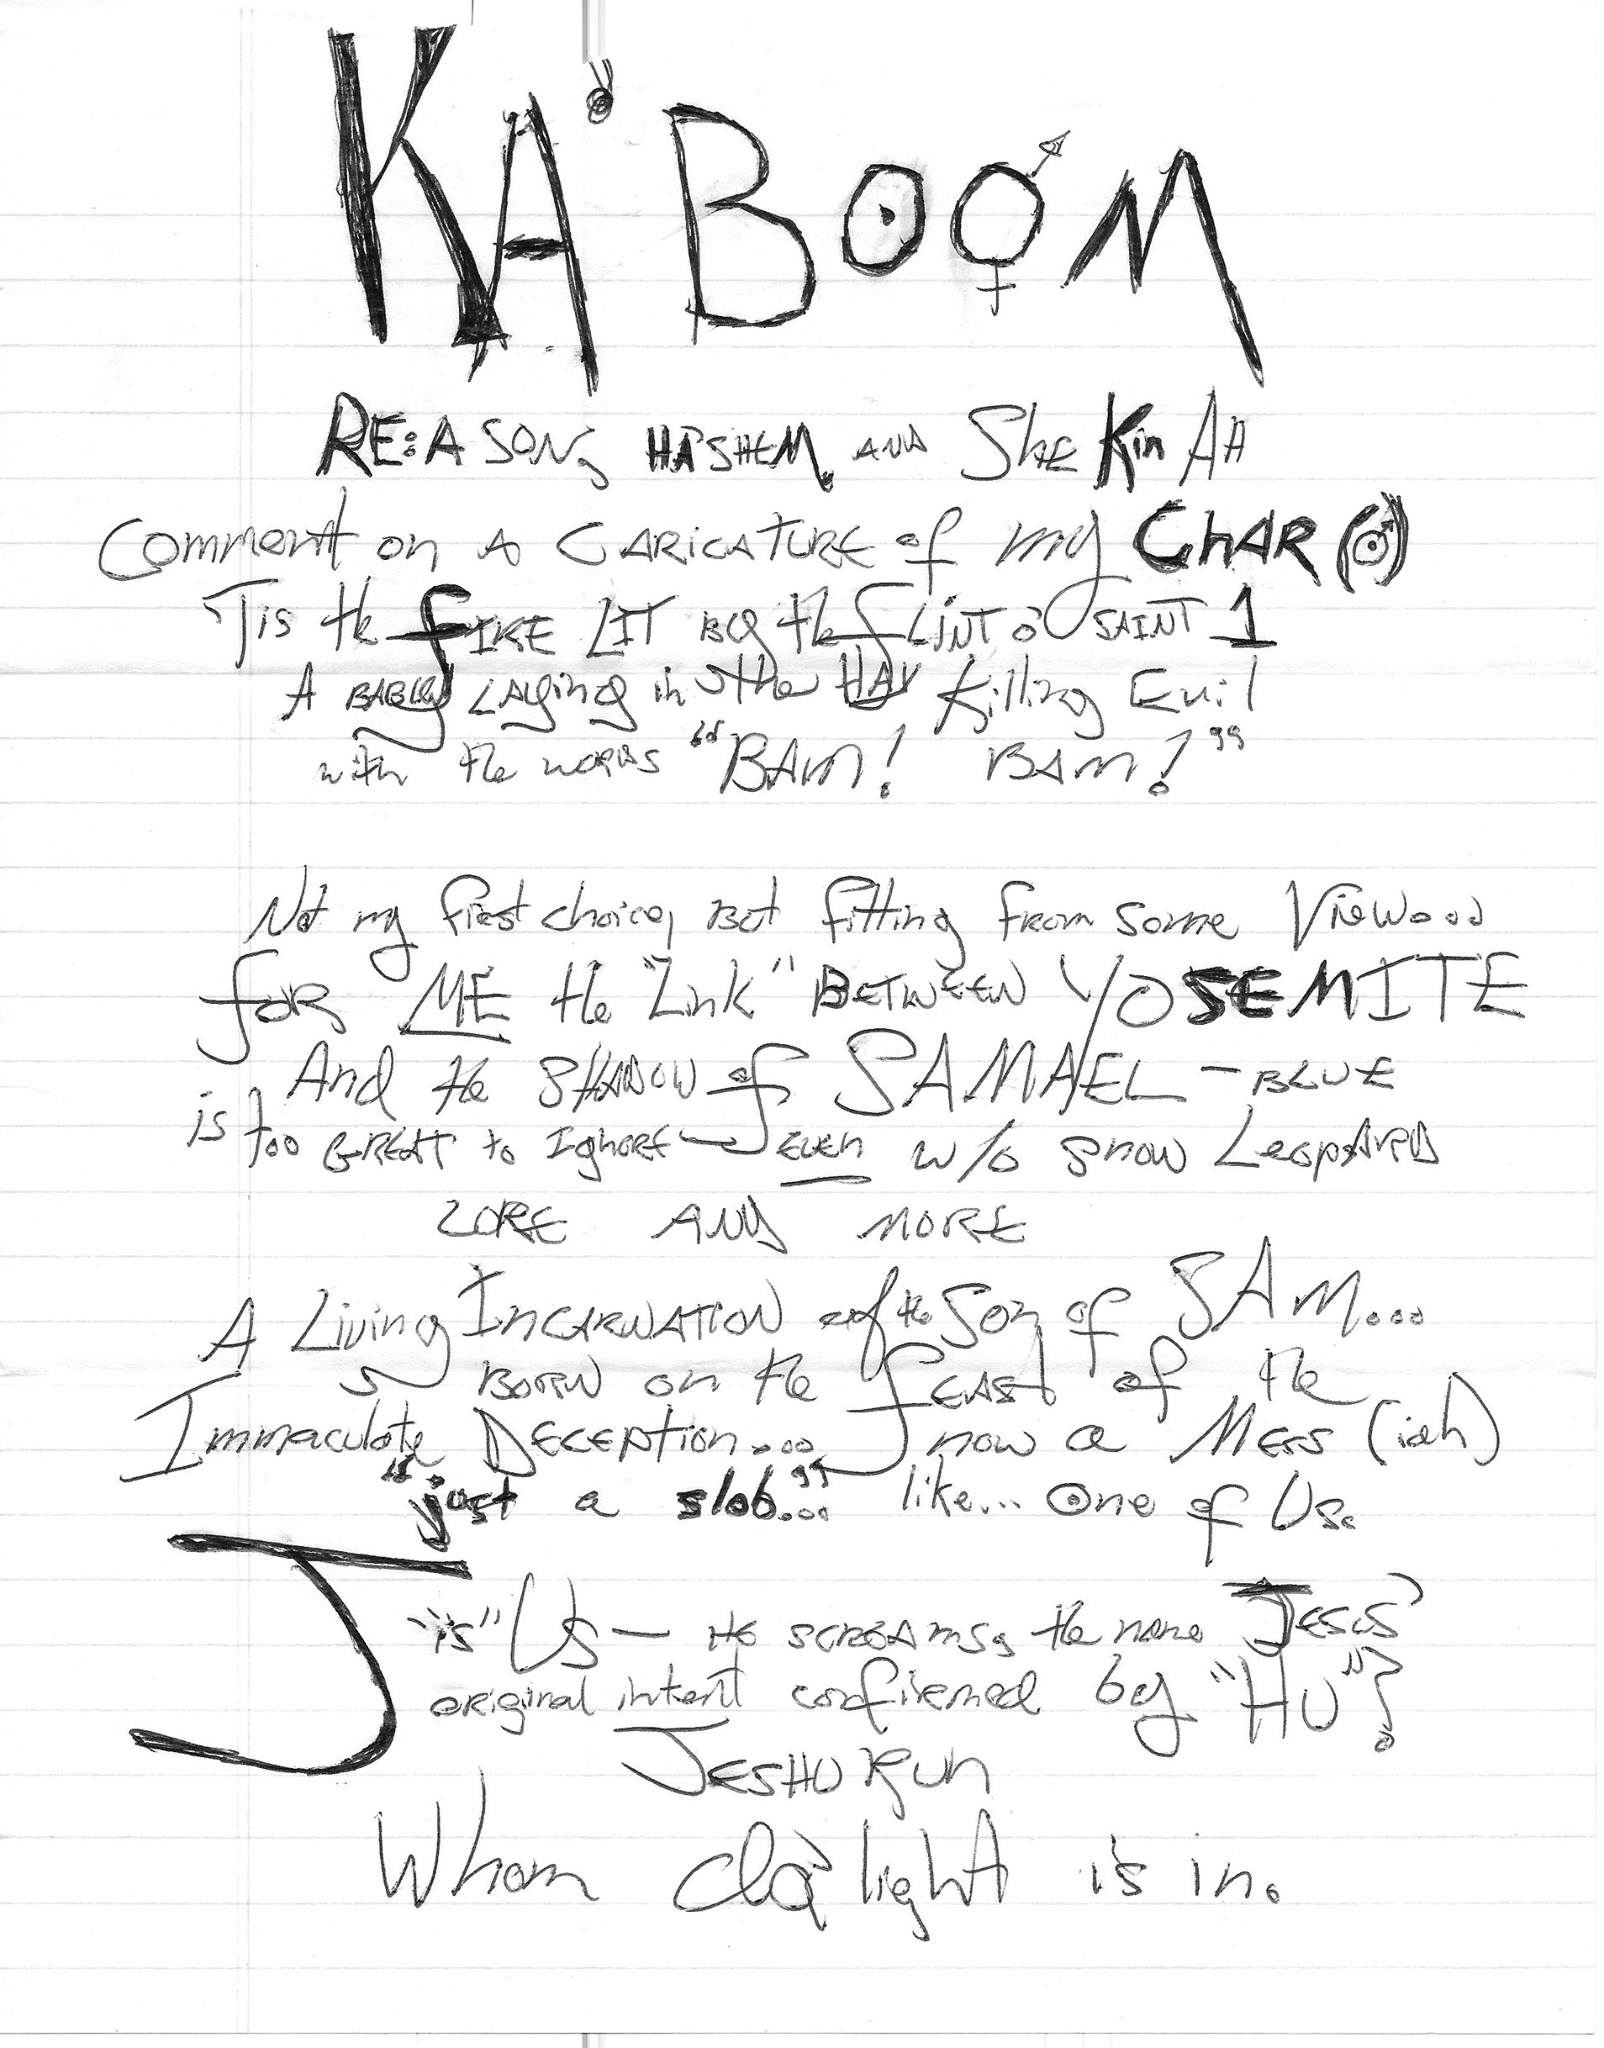 KA'BOOM
RE:A SON, HA'SHEM. AND SHEKinAH
Comment on A CARICATURE of my CHAR
'Tis the FIRE LIT by the fLiNT o' SAINT 1
A BABY LAYing in the HAY Killing Evil
with the WORDS "BAM! BAM!"
Not my first choice, BUT fitting from some View...
for ME the "Link" BETWEEN YOSEMITE
And the SHADOW of SAMAEL - BLUE
is too GREAT to IGNORE EVEN w/o snow LeopARD
LORE ANY MORE
A Living INCARNATION of the Son of SAM...
BORN on the FEAST of the
Immaculate DECEPtion... now a MESS (iah)
"just a slob..." like... One of Us.
J
"is" Us — HE SCREAMS, the name JESUS'
original intent confirmed by "HU"?
JESHURun
Whom da'lighT is in.